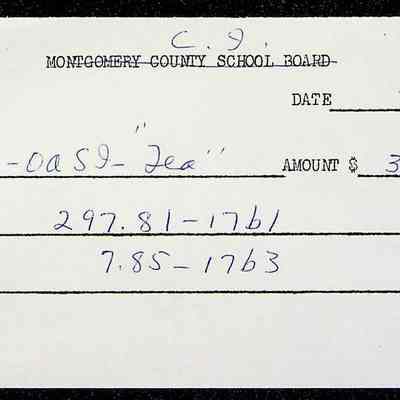 C. I.
MONTGOMERY COUNTY SCHOOL BOARD
DATE
-OASI- "Fea" AMOUNT $ 3
297.81-1761
7.85-1763